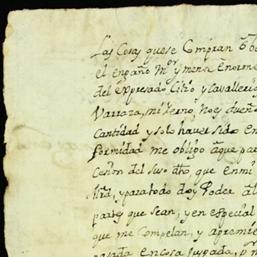 Las Cosas que se Compran
el engaño M.or y menos Enorme
del expresado Citio y Cavalleria
Varraza, mi Yerno, No es dueño
Cantidad y solo haver sido En
formidad me obligo aque
que Enmi
y para todo doy Poder al
partes que sean, y en especial
que me Compelan, y apremien
pasada En cosa Jusgada,